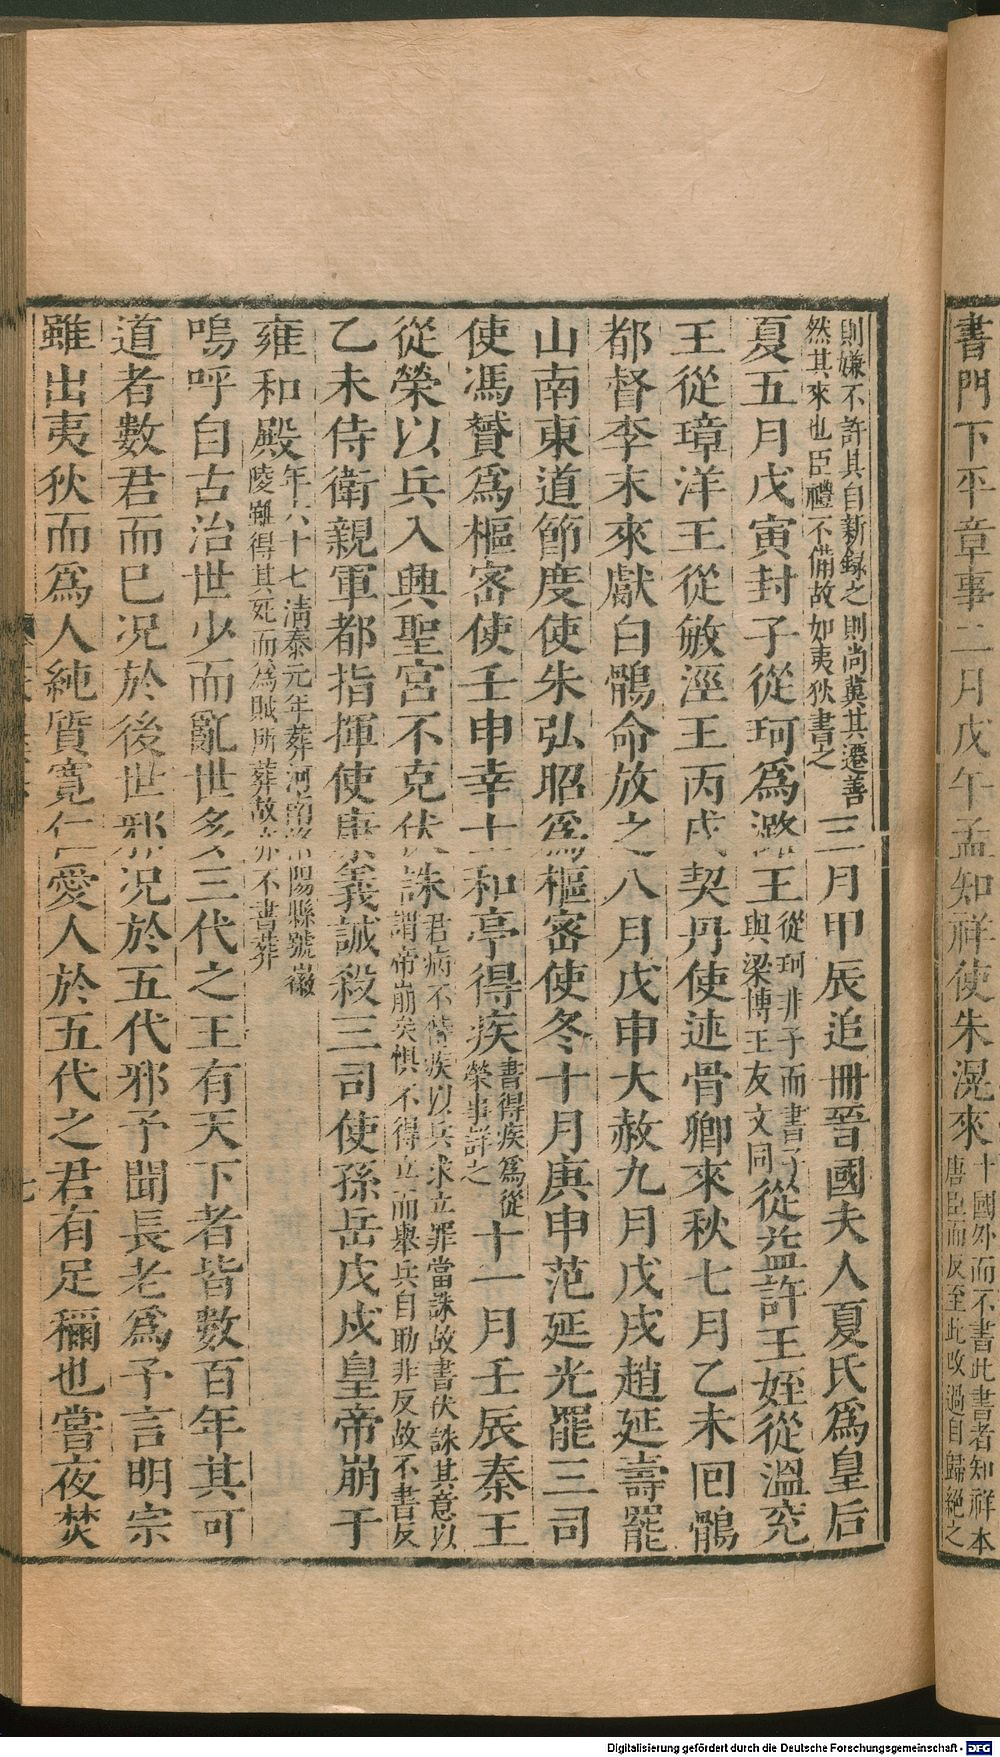 書門下平章事二月戊午孟知祥使朱滉來十國外而不書此書者知祥本唐臣而反至此改過自歸絕之
則嫌不許其自新録之則尚冀其遷善然其來也臣禮不備故如夷狄書之三月甲辰追冊晉國夫人夏氏爲皇后
夏五月戊寅封子從珂爲潞王從珂非子而書子與梁博王友文同從益許王姪從溫兖
王從璋洋王從敏涇王丙戌契丹使述骨卿來秋七月乙未回鶻
都督李末來獻白鶻命放之八月戊申大赦九月戊戌趙延壽罷
山南東道節度使朱弘昭爲樞密使冬十月庚申范延光罷三司
使馮贇爲樞密使壬申幸士和亭得疾書得疾爲從榮事詳之十一月壬辰秦王
從榮以兵入興聖宮不克伏誅君病不侍疾以兵求立罪當誅故書伏誅其意以謂帝崩矣懼不得立而舉兵自助非反故不書反
乙未侍衛親軍都指揮使康義誠殺三司使孫岳戊戌皇帝崩于
雍和殿年六十七清泰元年葬河南洛陽縣號徽陵雖得其死而爲賊所葬故亦不書葬
嗚呼自古治世少而亂世多三代之王有天下者皆數百年其可
道者數君而已况於後世邪况於五代邪予聞長老爲予言明宗
雖出夷狄而爲人純質寬仁愛人於五代之君有足稱也嘗夜焚
Digitalisierung gefördert durch die Deutsche Forschungsgemeinschaft - DFG